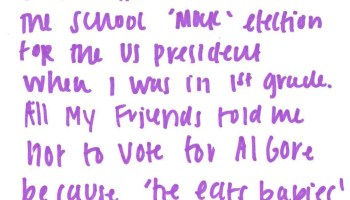 the school "Mock" election
for the US president
when I was in 1st grade.
All My Friends told me
not to vote for Al Gore
because "he eats babies"